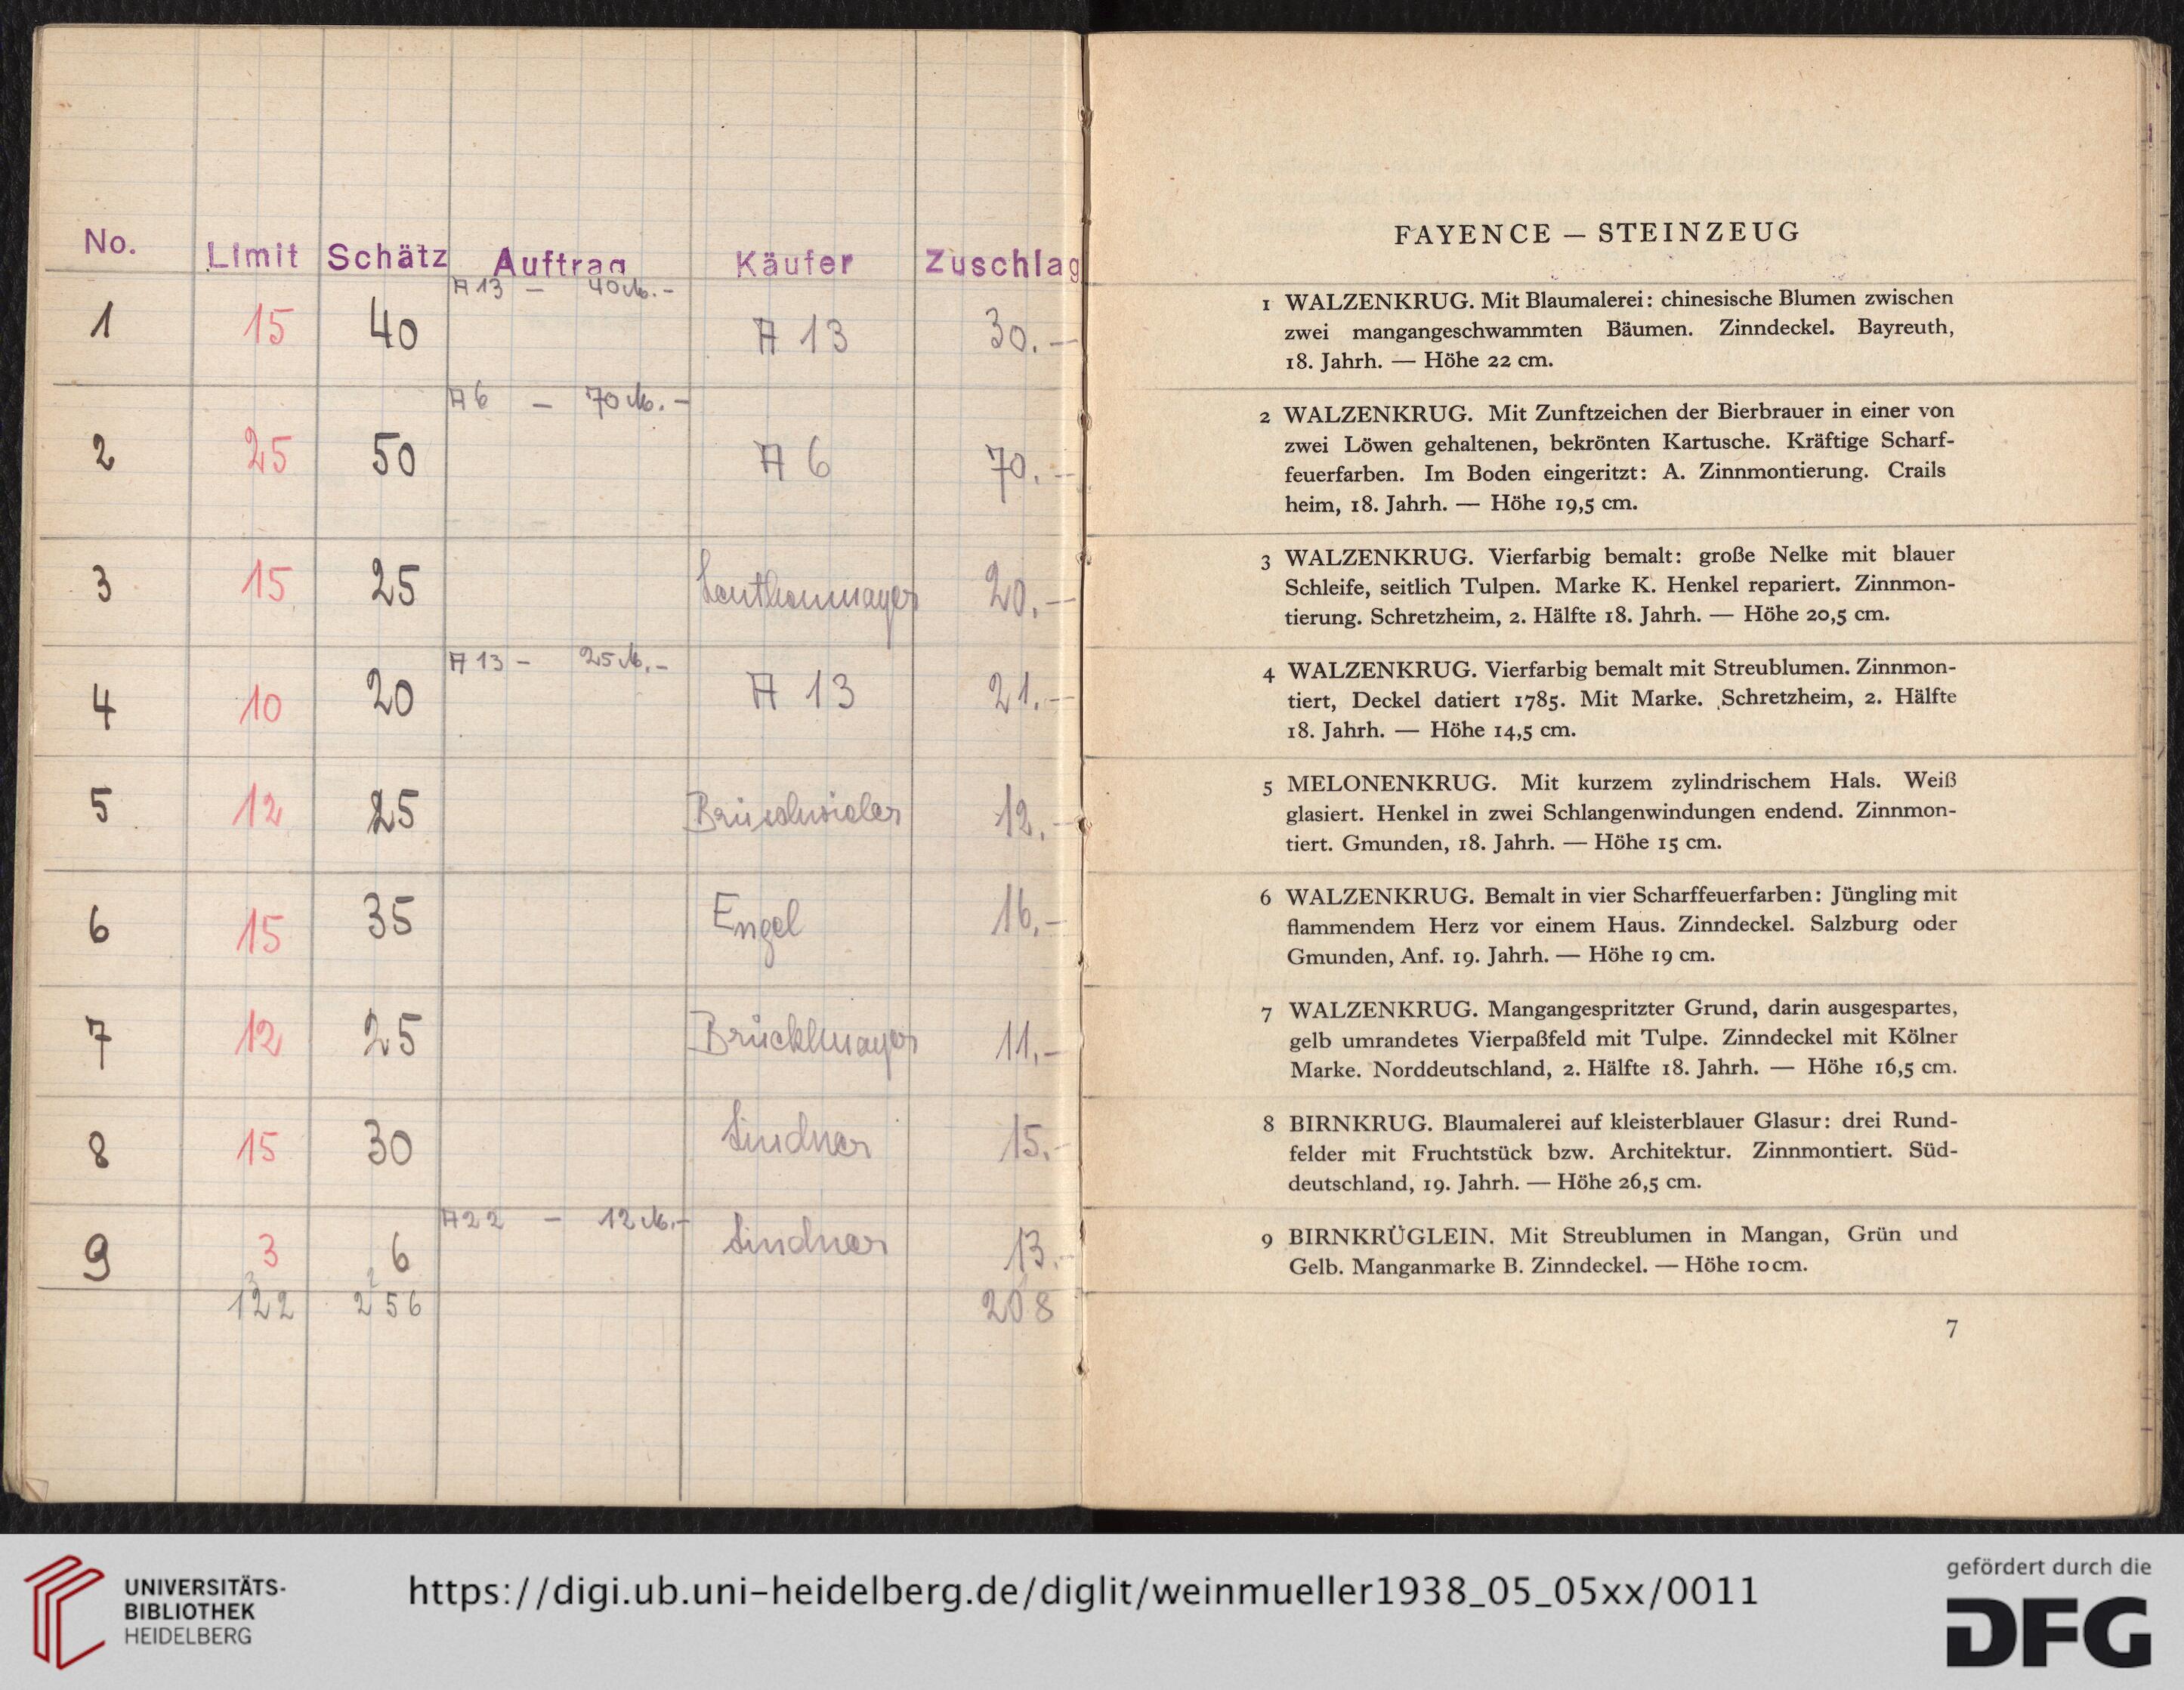 No. Limit Schätz Auftrag Käufer Zuschlag
A 13 – 40 M. –
1 15 40 A 13 30.–
A 6 – 70 M. –
2 25 50 A 6 70.–
3 15 25 20.–
A 13 – 25 M. –
4 10 20 A 13 21.–
5 12 25 12.–
6 15 35 Engel 16.–
7 12 25 Brücklmayer 11.–
8 15 30 Lindner 15.–
A 22 – 12 M. –
9 3 6 Lindner 13.–
122 256 208
FAYENCE – STEINZEUG
1 WALZENKRUG. Mit Blaumalerei: chinesische Blumen zwischen
zwei mangangeschwammten Bäumen. Zinndeckel. Bayreuth,
18. Jahrh. — Höhe 22 cm.
2 WALZENKRUG. Mit Zunftzeichen der Bierbrauer in einer von
zwei Löwen gehaltenen, bekrönten Kartusche. Kräftige Scharf-
feuerfarben. Im Boden eingeritzt: A. Zinnmontierung. Crails
heim, 18. Jahrh. — Höhe 19,5 cm.
3 WALZENKRUG. Vierfarbig bemalt: große Nelke mit blauer
Schleife, seitlich Tulpen. Marke K. Henkel repariert. Zinnmon-
tierung. Schretzheim, 2. Hälfte 18. Jahrh. — Höhe 20,5 cm.
4 WALZENKRUG. Vierfarbig bemalt mit Streublumen. Zinnmon-
tiert, Deckel datiert 1785. Mit Marke. Schretzheim, 2. Hälfte
18. Jahrh. — Höhe 14,5 cm.
5 MELONENKRUG. Mit kurzem zylindrischem Hals. Weiß
glasiert. Henkel in zwei Schlangenwindungen endend. Zinnmon-
tiert. Gmunden, 18. Jahrh. — Höhe 15 cm.
6 WALZENKRUG. Bemalt in vier Scharffeuerfarben: Jüngling mit
flammendem Herz vor einem Haus. Zinndeckel. Salzburg oder
Gmunden, Anf. 19. Jahrh. — Höhe 19 cm.
7 WALZENKRUG. Mangangespritzter Grund, darin ausgespartes,
gelb umrandetes Vierpaßfeld mit Tulpe. Zinndeckel mit Kölner
Marke. Norddeutschland, 2. Hälfte 18. Jahrh. — Höhe 16,5 cm.
8 BIRNKRUG. Blaumalerei auf kleisterblauer Glasur: drei Rund-
felder mit Fruchtstück bzw. Architektur. Zinnmontiert. Süd-
deutschland, 19. Jahrh. — Höhe 26,5 cm.
9 BIRNKRÜGLEIN. Mit Streublumen in Mangan, Grün und
Gelb. Manganmarke B. Zinndeckel. — Höhe 10cm.
7
UNIVERSITÄTS-
BIBLIOTHEK
HEIDELBERG
https://digi.ub.uni-heidelberg.de/diglit/weinmueller1938_05_05xx/0011
gefördert durch die
DFG